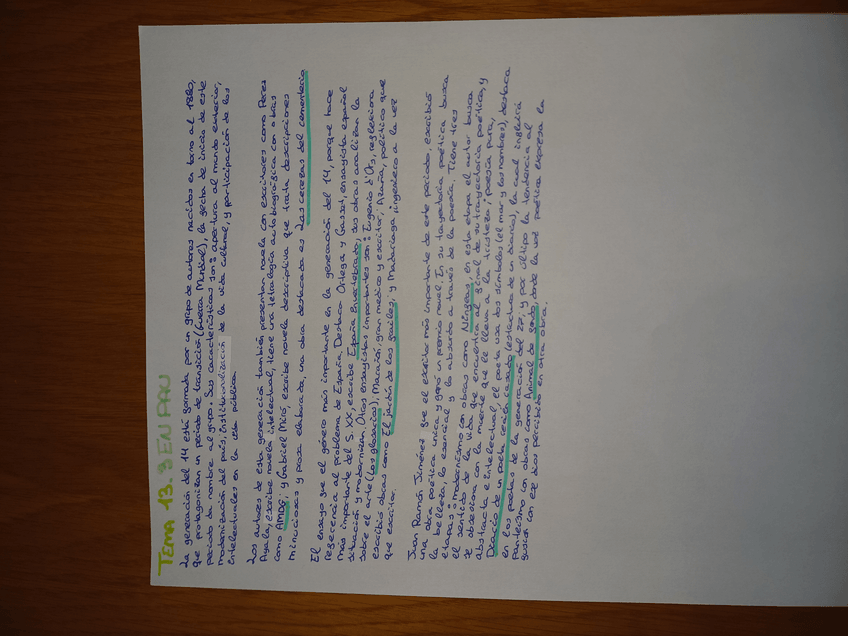 TEMA 13. 3 EN PAU
La generación del 14 está formada por un grupo de autores nacidos en torno al 1880,
que protagonizan un periodo de transición (Guerra Mundial), la fecha de inicio de este
periodo da nombre al grupo. Sus características son: apertura al mundo exterior,
modernización del país, institucionalización de la vida cultural, y participación de los
intelectuales en la vida pública.
Los autores de esta generación también presentan novela con escritores como Pérez
Ayala, escribe novela intelectual, tiene una tetralogía autobiográfica con obras
como AMDG; y Gabriel Miró, escribe novela descriptiva que trata descripciones
minuciosas y prosa elaborada, una obra destacada es Las cerezas del cementerio
El ensayo fue el género más importante en la generación del 14, porque hace
referencia al problema de España. Destaco Ortega y Gasset, ensayista español
más importante del S. XX, escribe España Invertebrada, sus obras analizan la
situación y modernizan. Otros ensayistas importantes son: Eugenio d'Ors, reflexiona
sobre el arte (Los glosarios), Marañón, gran médico y escritor, Azaña, político que
escribió obras como El jardín de los frailes, y Madariaga, ingeniero a la vez
que escritor.
Juan Ramón Jiménez fue el escritor más importante de este periodo, escribió
una obra poética única y ganó un premio novel. En su trayectoria poética busca
la belleza, lo esencial y lo absurdo a través de la poesía. Tiene tres
etapas: modernismo con obras como Ninfeas, en esta etapa el autor busca
el sentido de la vida que encuentra al final de su trayectoria poética, y
se obsesiona con la muerte que le lleva a la tristeza; poesía pura,
abstracta e intelectual, el poeta usa dos símbolos (el mar y los nombres), destaca
Diario de un poeta recién casado (estructura de un diario), la cual influirá
en los poetas de la generación del 27; y por último la tendencia al
panteísmo con obras como Animal de fondo, donde la voz poética expresa la
fusión con ese dios percibido en otra obra.